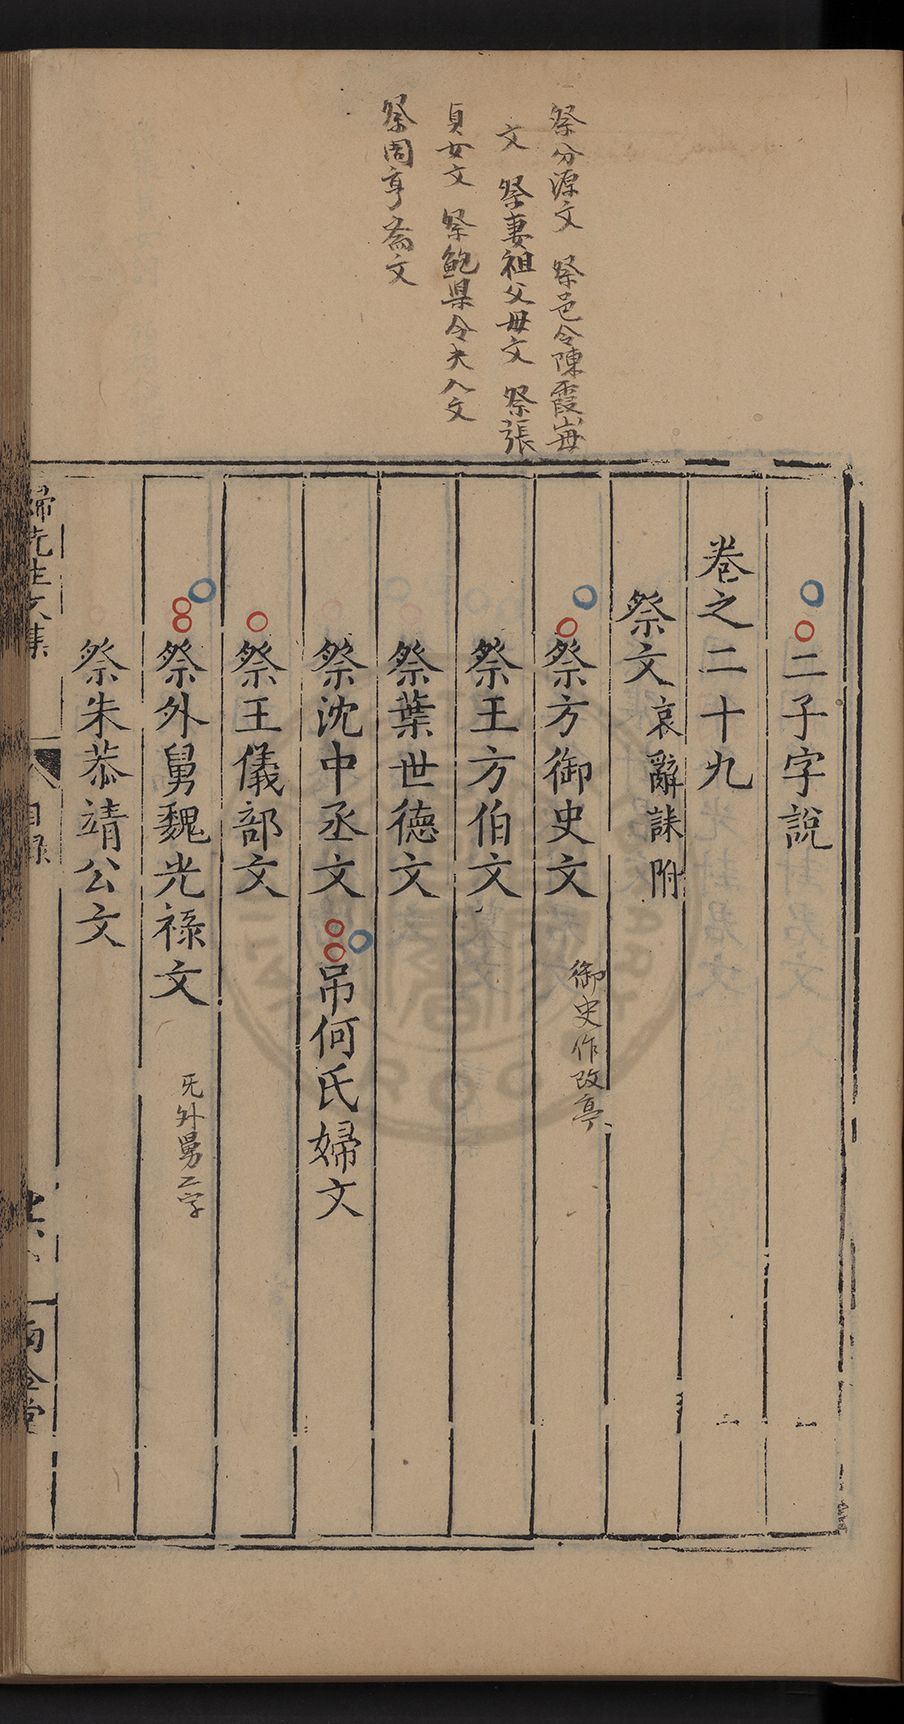 祭分源文 祭邑令陳霞海
文 祭妻祖父母文 祭張
貞女文 祭鮑県令夫人文
祭周亨齋文
二子字說
卷之二十九
祭文 哀辭誄附
祭方御史文 御史作改亭
祭王方伯文
祭葉世德文
祭沈中丞文 吊何氏婦文
祭王儀部文
祭外舅魏光祿文 旡外舅二字
祭朱恭靖公文
歸先生文集
目錄
雨金堂